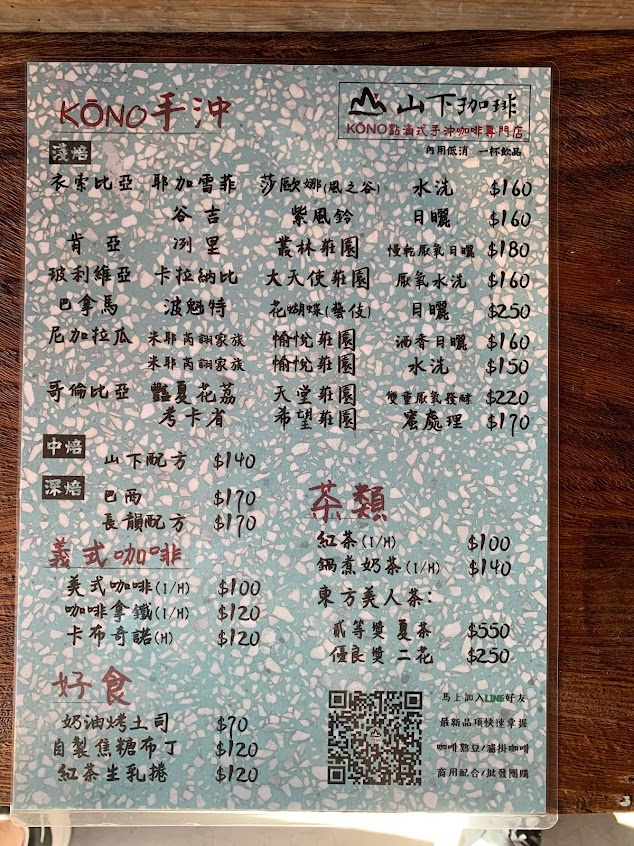 KŌNO手沖
山下珈琲
KŌNO點滴式手沖咖啡專門店
內用低消 一杯飲品
淺焙
衣索比亞 耶加雪菲 莎歐娜(風之谷) 水洗 $160
谷吉 紫風鈴 日曬 $160
肯亞 冽里 叢林莊園 慢乾厭氧日曬 $180
玻利維亞 卡拉納比 大天使莊園 厭氧水洗 $160
巴拿馬 波魁特 花蝴蝶(藝伎) 日曬 $250
尼加拉瓜 米耶芮詡家族 愉悅莊園 酒香日曬 $160
米耶芮詡家族 愉悅莊園 水洗 $150
哥倫比亞 豔夏花荔 天堂莊園 雙重厭氧發酵 $220
考卡省 希望莊園 蜜處理 $170
中焙
山下配方 $140
深焙
巴西 $170
長韻配方 $170
義式咖啡
美式咖啡(I/H) $100
咖啡拿鐵(I/H) $120
卡布奇諾(H) $120
好食
奶油烤土司 $70
自製焦糖布丁 $120
紅茶生乳捲 $120
茶類
紅茶(I/H) $100
鍋煮奶茶(I/H) $140
東方美人茶:
貳等獎 夏茶 $550
優良獎 二花 $250
馬上加入LINE好友
最新品項快速掌握
咖啡熟豆/濾掛咖啡
商用配合/批發團購